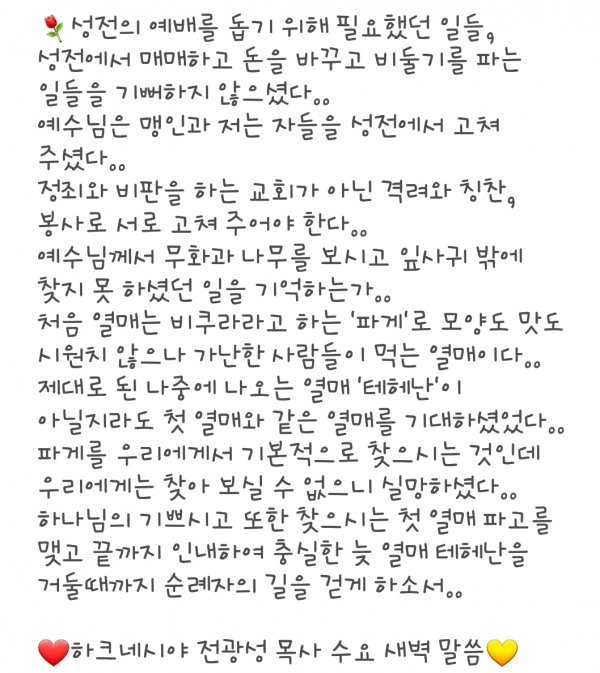 🌹성전의 예배를 돕기 위해 필요했던 일들,
성전에서 매매하고 돈을 바꾸고 비둘기를 파는
일들을 기뻐하지 않으셨다..
예수님은 맹인과 저는 자들을 성전에서 고쳐
주셨다..
정죄와 비판을 하는 교회가 아닌 격려와 칭찬,
봉사로 서로 고쳐 주어야 한다..
예수님께서 무화과 나무를 보시고 잎사귀 밖에
찾지 못 하셨던 일을 기억하는가..
처음 열매는 비쿠라라고 하는 '파게'로 모양도 맛도
시원치 않으나 가난한 사람들이 먹는 열매이다..
제대로 된 나중에 나오는 열매 '테헤난'이
아닐지라도 첫 열매와 같은 열매를 기대하셨었다..
파게를 우리에게서 기본적으로 찾으시는 것인데
우리에게는 찾아 보실 수 없으니 실망하셨다..
하나님의 기쁘시고 또한 찾으시는 첫 열매 파고를
맺고 끝까지 인내하여 충실한 늦 열매 테헤난을
거둘때까지 순례자의 길을 걷게 하소서..
❤️하크네시야 전광성 목사 수요 새벽 말씀💛